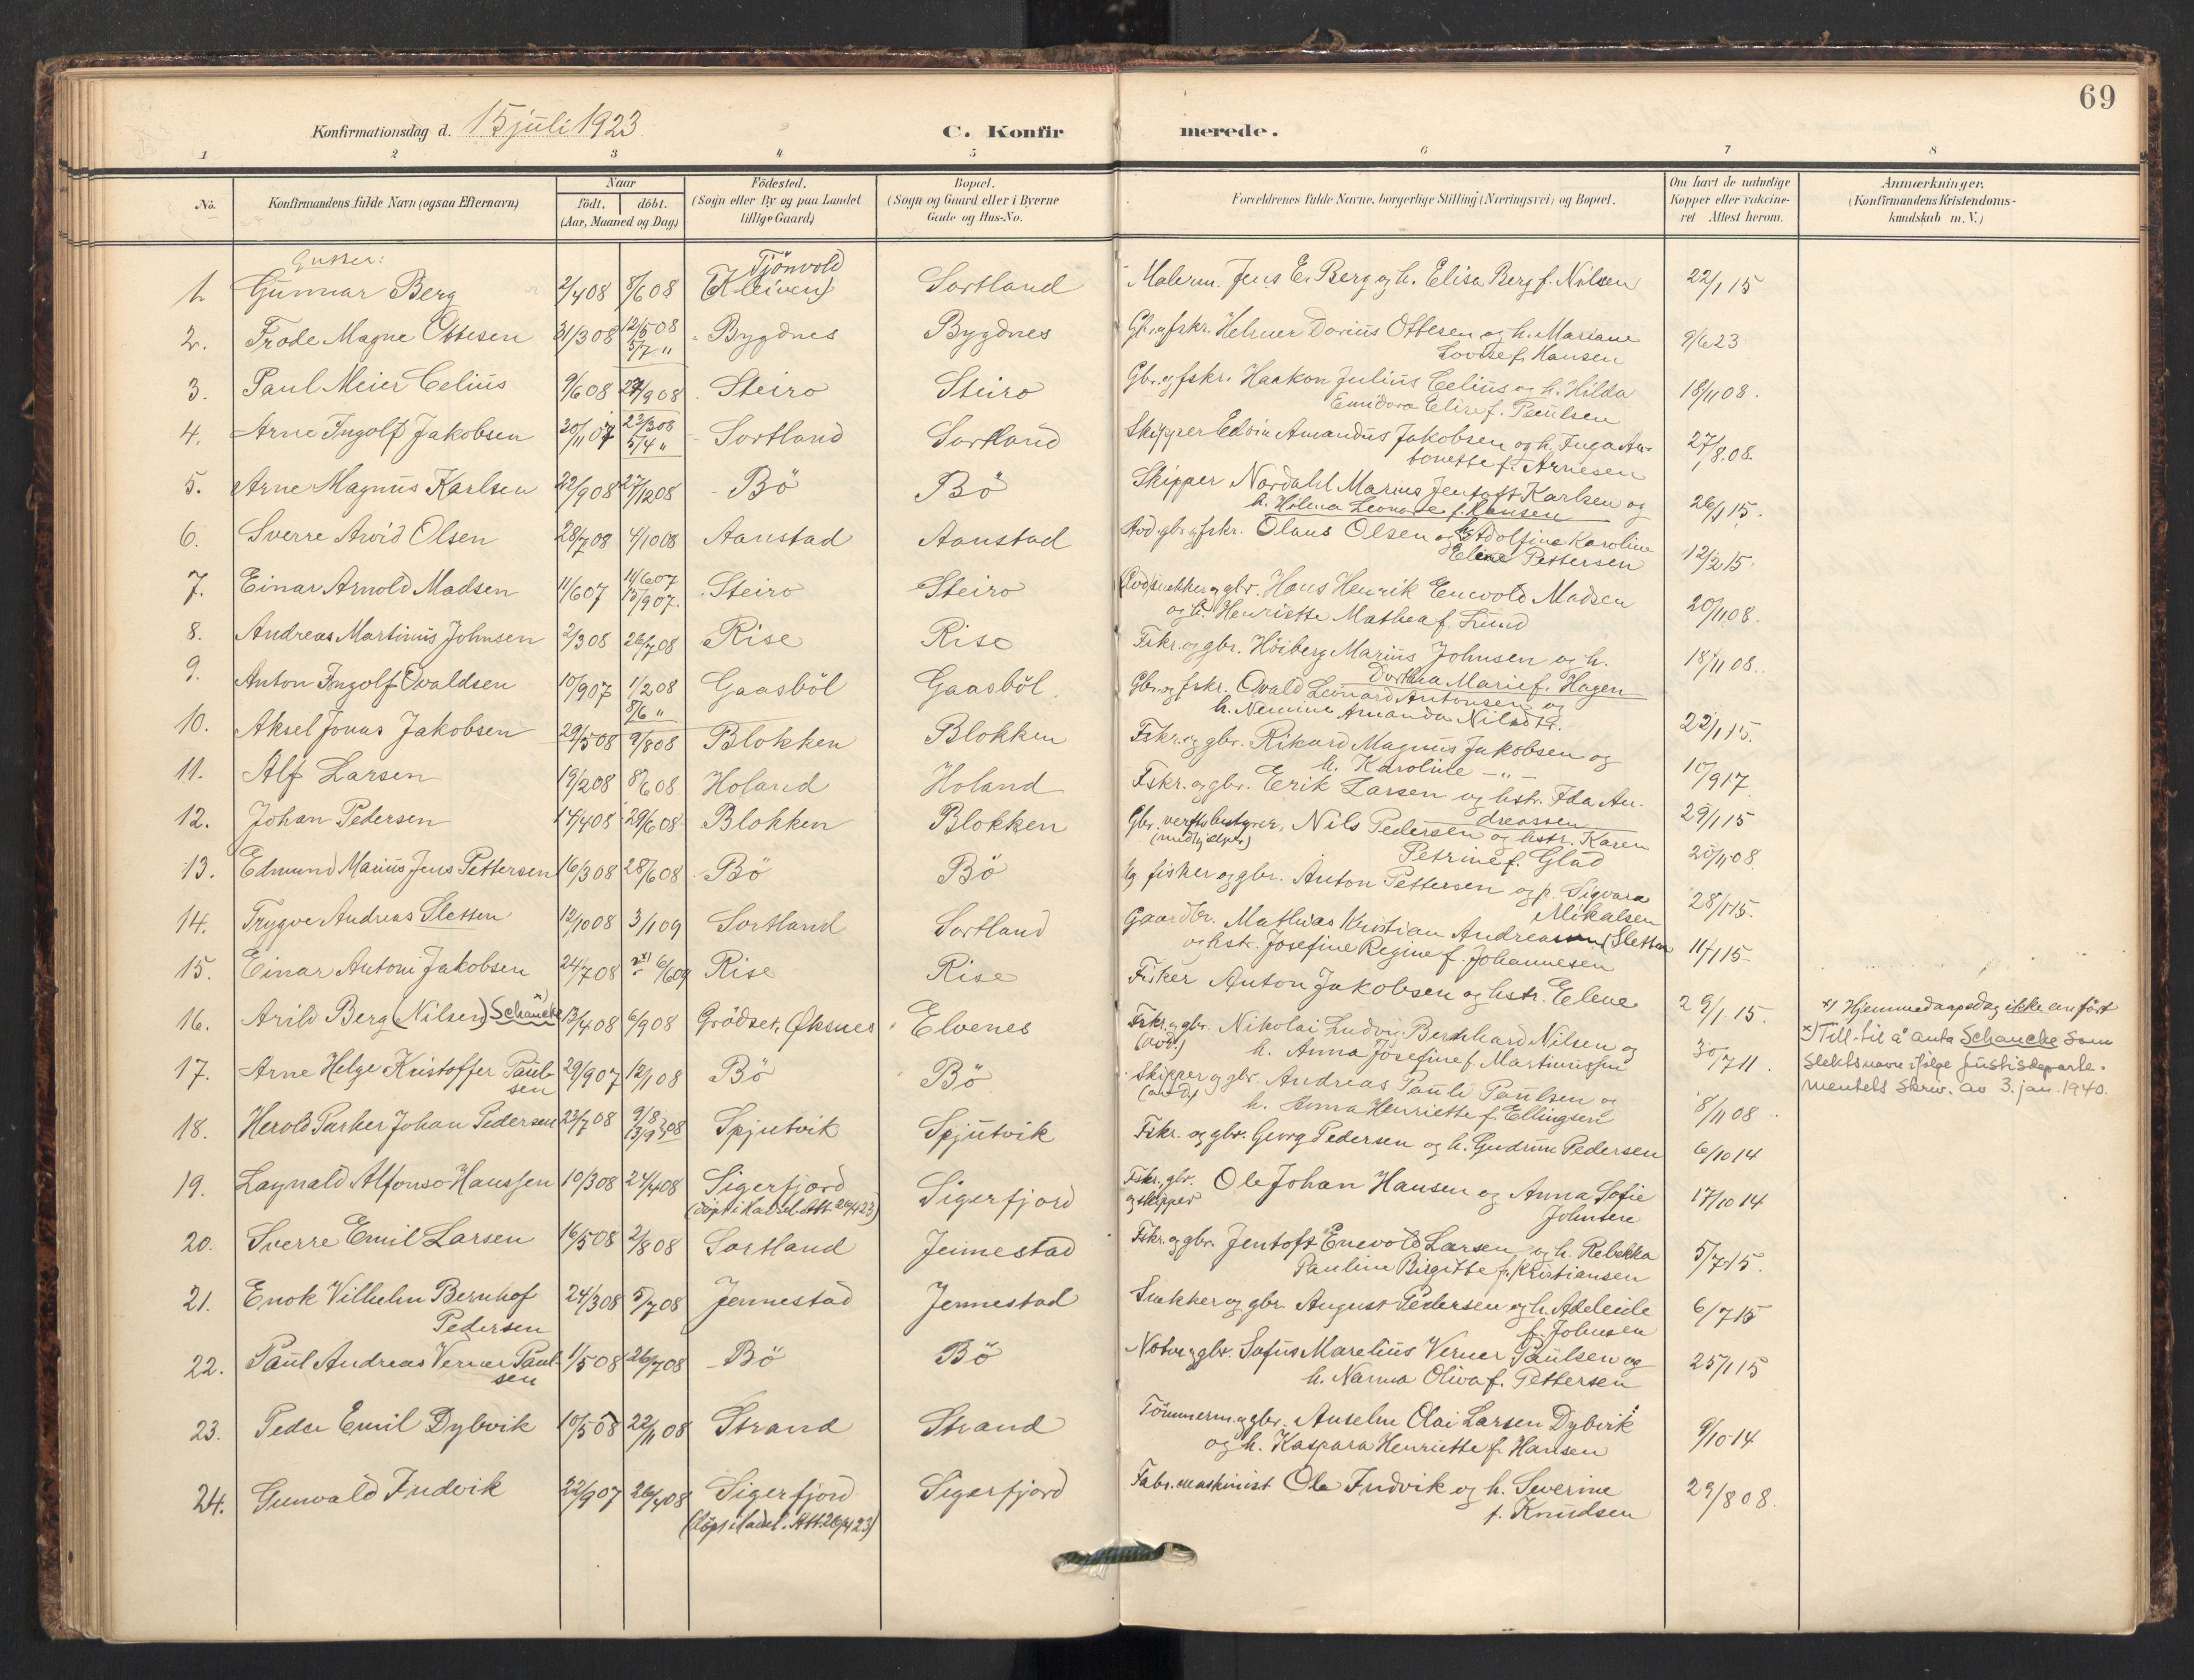 69
Konfirmationsdag d. 15 juli 1923
C. Konfirmerede.
1 2 3 4 5 6 7 8
No.
Konfirmandens fulde Navn (ogsaa Efternavn)
Naar
födt. döbt.
(Aar, Maaned og Dag)
Födested.
(Sogn eller By og paa Landet
tillige Gaard)
Bopæl.
(Sogn og Gaard eller i Byerne
Gade og Hus-No.
Forældrenes fulde Navne, borgerlige Stilling (Næringsvei) og Bopæl.
Om havt de naturlige
Kopper eller vakcine-
ret Attest herom.
Anmærkninger.
(Konfirmandens Kristendoms-
kundskab m. V.)
Gutter:
1. Gunnar Berg 2/4 08 8/6 08 Tjönvold (Kleiven) Sortland Malerm. Jens E. Berg og h. Elisa Berg f. Nilsen 22/1 15
2. Frode Magne Ottesen 31/3 08 12/5 08 5/7 " Bygdnes Bygdnes Gbr. og fskr. Helmer Darius Ottesen og h. Mariane
Lovise f. Hansen 9/6 23
3. Paul Meier Celius 9/6 08 27/9 08 Steiro Steiro Gbr. og fskr. Haakon Julius Celius og h. Hilda
Emidora Elise f. Paulsen 18/11 08.
4. Arne Ingolf Jakobsen 20/11 07 22/3 08 5/4 " Sortland Sortland Skipper Edvin Amandus Jakobsen og h. Inga An-
tonette f. Arnesen 27/8 08.
5. Arne Magnus Karlsen 22/9 08 27/12 08 Bö Bö Skipper Nordahl Marius Jentoft Karlsen og
h. Helma Leonore f. Hansen 26/1 15.
6. Sverre Arvid Olsen 28/7 08 4/10 08 Aanstad Aanstad gbr. og fskr. Olaus Olsen og h. Adolfine Karoline
Eline Pettersen 12/2 15.
7. Einar Arnold Madsen 11/6 07 14/6 07 15/9 07. Steiro Steiro gbr. Hans Henrik Enevold Madsen
og h. Henriette Mathea f. Lund 20/11 08.
8. Andreas Martinus Johnsen 2/3 08 26/7 08 Rise Rise Fskr. og gbr. Höiberg Marius Johnsen og h.
Dorthea Marie f. Hagen 18/11 08.
9. Anton Ingolf Ovaldsen 10/9 07 1/2 08 8/6 " Gaasböl Gaasböl. Gbr. og fskr. Ovald Leonard Antonsen og
h. Nemine Amanda 22/1 15.
10. Aksel Jonas Jakobsen 29/5 08 9/8 08 Blokken Blokken Fskr. og gbr. Rikard Magnus Jakobsen og
h. Karoline — " — 10/9 17
11. Alf Larsen 19/2 08 8/6 08 Holand Holand Fskr. og gbr. Erik Larsen og hstr. Ida An-
dreassen 29/1 15
12. Johan Pedersen 14/4 08 29/6 08 Blokken Blokken Gbr. verftsbestyrer, Nils Pedersen og hstr. Karen
(medhjelper) Petrine f. Glad 20/11 08.
13. Edmund Marius Jens Pettersen 16/3 08 28/6 08 Bö Bö fisker og gbr. Anton Pettersen og p. Sigvara
Mikalsen 28/1 15.
14. Trygve Andreas Sletten 12/10 08 3/1 09 Sortland Sortland Gaardbr. Mathias Kristian Andreassen (Sletten
og hstr. Josefine Regine f. Johannesen 11/1 15
15. Einar Antoni Jakobsen 24/7 08 x) 6/6 09 Rise Rise Fisker Anton Jakobsen og hstr. Elene 29/1 15. x) Hjemmedaapsdag ikke anfört
16. Arild Berg (Nilsen) Schancke x) 13/4 08 6/9 08 Grödset, Öksnes Elvenes Fskr. og gbr. Nikolai Ludvig Bernhard Nilsen og
h. Anna Josefine f. Martinussen 30/7 11.
x) Till. til å anta Schancke som
slektsnavn ifölge Justisdeparte-
mentets skriv. av 3. jan. 1940.
17. Arne Helge Kristoffer Paul-
sen 29/9 07 12/1 08 Bö Bö Skipper og gbr. Andreas Pauli Paulsen og
h. Anna Henriette f. Ellingsen 8/11 08
18. Herold Parker Johan Pedersen 22/7 08 9/8 08 13/9 Spjutvik Spjutvik Fskr. og gbr. Georg Pedersen og h. Gudrun Pedersen 6/10 14
19. Laynald Alfonso Hanssen 10/3 08 24/4 08 Sigerfjord Sigerfjord Fskr., gbr. Ole Johan Hansen og Anna Sofie
(döpt i Hadsel. Att. 20/4 23) og skipper Johnsen 17/10 14
20. Sverre Emil Larsen 16/5 08 2/8 08 Sortland Jennestad Fskr. og gbr. Jentoft Enevold Larsen og h. Rebekka
Pauline Birgitte f. Kristiansen 5/7 15.
21. Enok Vilhelm Bernhof
Pedersen 24/3 08 5/7 08 Jennestad Jennestad Snekker og gbr. August Pedersen og h. Adeleide
f. Johnsen 6/7 15
22. Paul Andreas Verner Paul-
sen 1/5 08 26/7 08 Bö Bö gbr. Sofus Marelius Verner Paulsen og
h. Nanna Oliva f. Pettersen 25/1 15
23. Peder Emil Dybvik 10/5 08 22/11 08 Strand Strand Tömmerm. og gbr. Anselm Olai Larsen Dybvik
og h. Kaspara Henriette f. Hansen 9/10 14
24. Gunvald Indvik 22/9 07 26/4 08 Sigerfjord Sigerfjord Fabr. maskinist Ole Indvik og h. Severine
(döpt i Hadsel. Att. 20/4 23) f. Knudsen 29/8 08.